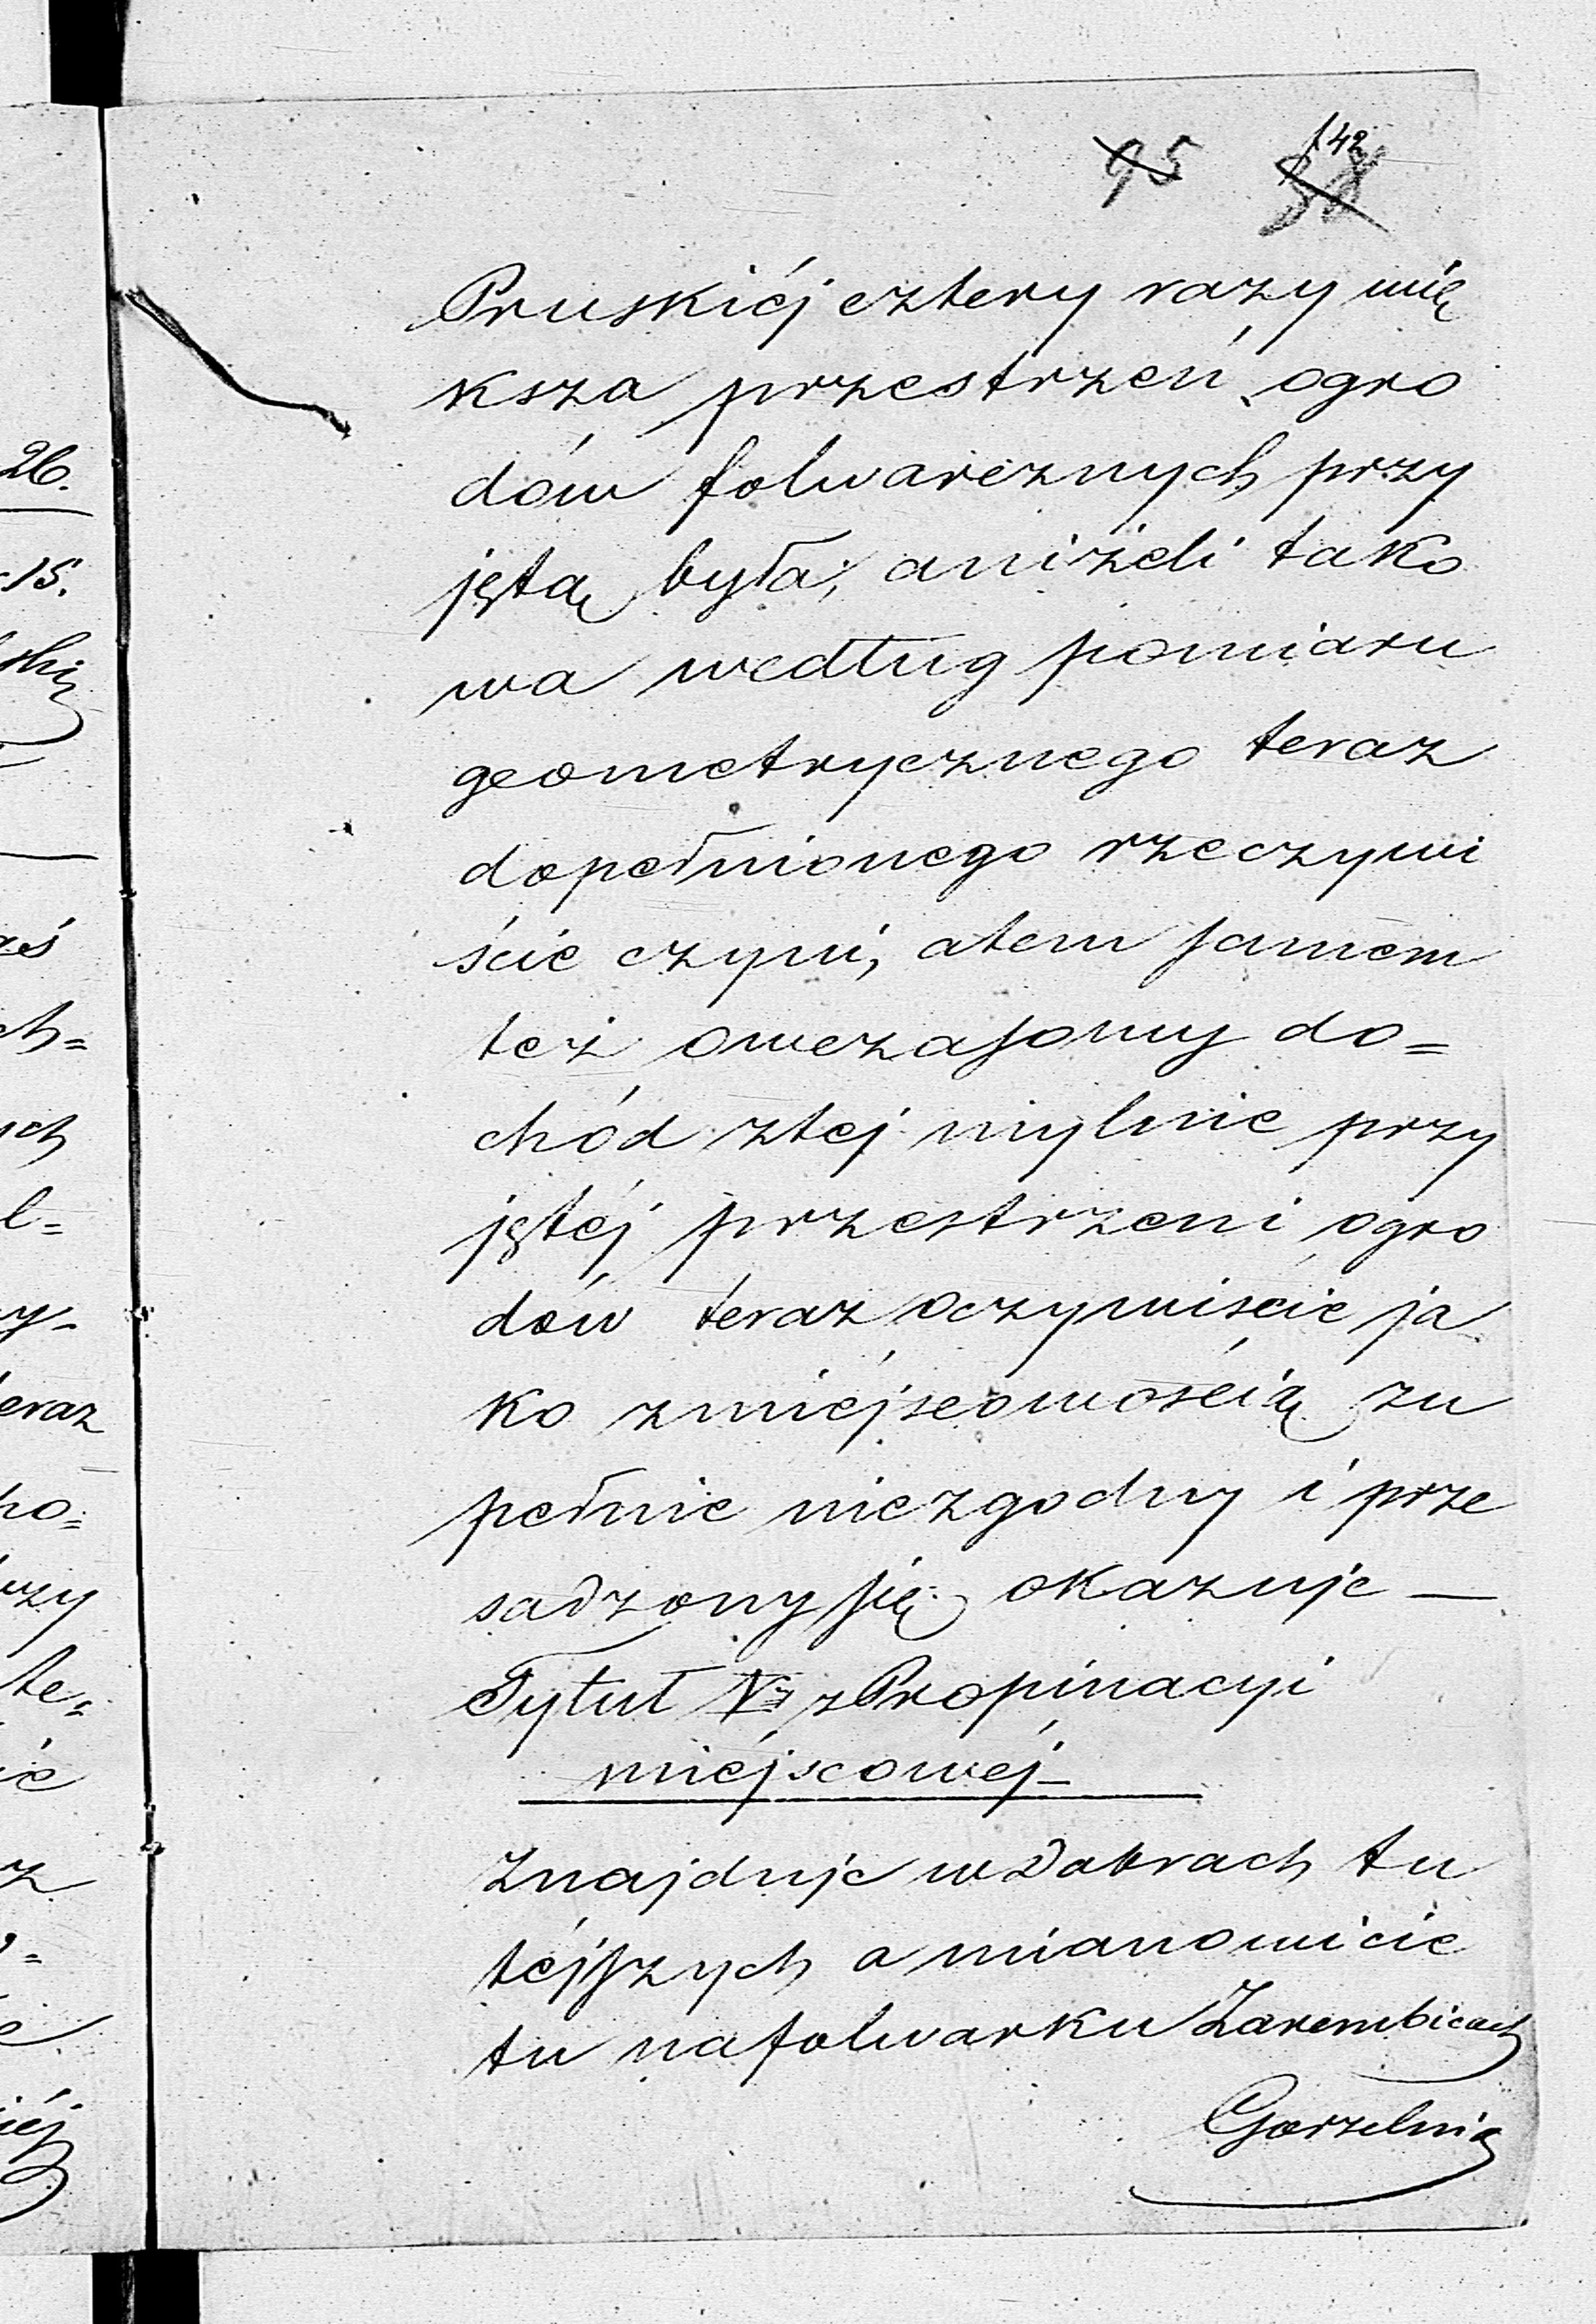 95 142
Pruskiéj cztery razy wię
ksza przestrzeń ogro
dów folwarcznych przy
jętą była, aniżeli tako
wa według pomiaru
geometrycznego teraz
dopełnionego rzeczywi
ście czyni, atem samem
też owczasowy do=
chód ztej mylnie przy
jętéj przestrzeni ogro
dów teraz oczywiście ja
ko zmiéjscowością zu
pełnie niezgodny i prze
sadzony się okazuje —
Tytuł V z Propinacyi
miéjscowéj
Znajduje w Dobrach tu
téjszych a mianowicie
tu na folwarku Zarembicach
Gorzelnia
26.
15.
aś
ch=
ych
l=
y-
teraz
no=
rzy
te=
ie
z
iéj